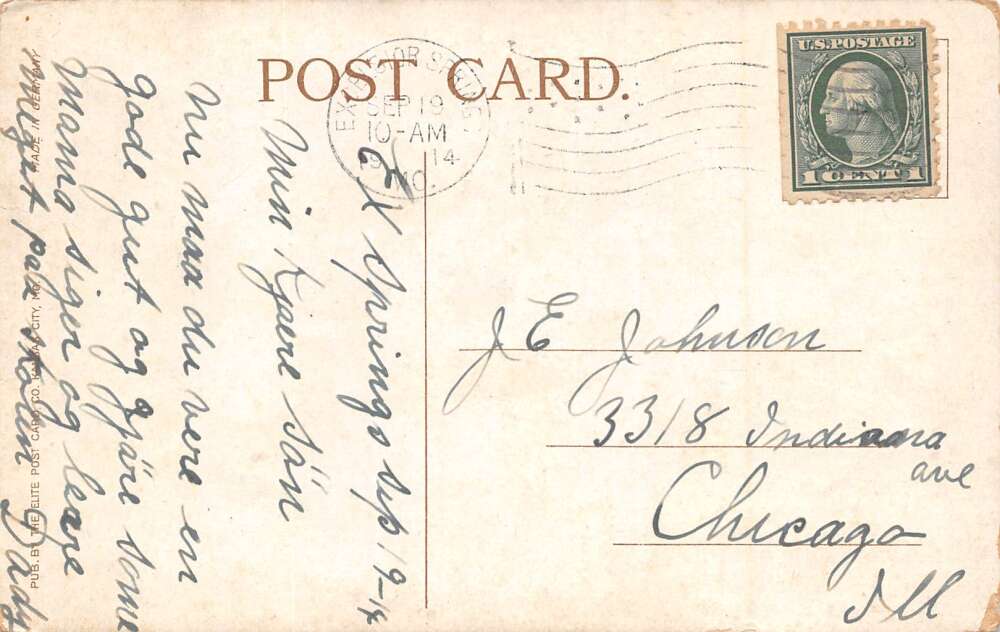 POST CARD.
EXCELSIOR SPRINGS
SEP 19
10-AM
1914
MO.
U.S. POSTAGE
1 CENT 1
Ex Springs sep 19-14
Min Kjære sön
nu maa du vere en
gode gut og gjöre some
Mama siger og leare
migit paa skolen Dady
J E Johnson
3318 Indiana
ave
Chicago
Ill
PUB. BY THE ELITE POST CARD CO. KANSAS CITY, MO.
MADE IN GERMANY